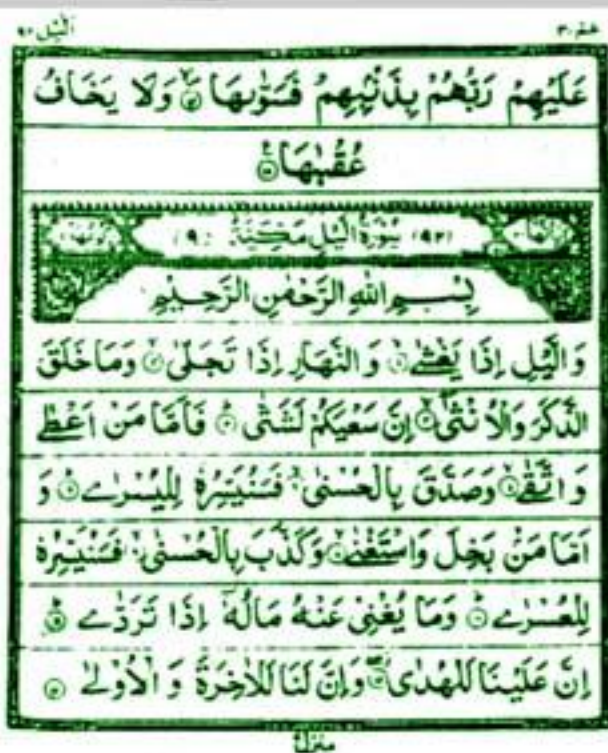 عم ٣٠ الَّيْل ٩٢
عَلَيْهِمْ رَبُّهُمْ بِذَنْۢبِهِمْ فَسَوّٰىهَا ۝۱۴ وَلَا يَخَافُ
عُقْبٰهَا ۝۱۵
(٩٢) سُوْرَةُ الَّيْلِ مَكِّيَّةٌ (٩)
بِسْمِ اللّٰهِ الرَّحْمٰنِ الرَّحِيْمِ
وَالَّيْلِ اِذَا يَغْشٰى ۝۱ وَالنَّهَارِ اِذَا تَجَلّٰى ۝۲ وَمَا خَلَقَ
الذَّكَرَ وَالْاُنْثٰٓى ۝۳ اِنَّ سَعْيَكُمْ لَشَتّٰى ۝۴ فَاَمَّا مَنْ اَعْطٰى
وَاتَّقٰى ۝۵ وَصَدَّقَ بِالْحُسْنٰى ۝۶ فَسَنُيَسِّرُهٗ لِلْيُسْرٰے ۝۷ وَ
اَمَّا مَنْۢ بَخِلَ وَاسْتَغْنٰى ۝۸ وَكَذَّبَ بِالْحُسْنٰى ۝۹ فَسَنُيَسِّرُهٗ
لِلْعُسْرٰے ۝۱۰ وَمَا يُغْنِىْ عَنْهُ مَالُهٗٓ اِذَا تَرَدّٰے ۝۱۱
اِنَّ عَلَيْنَا لَلْهُدٰى ۝۱۲ وَاِنَّ لَنَا لَلْاٰخِرَةَ وَ الْاُوْلٰى ۝۱۳
منزل